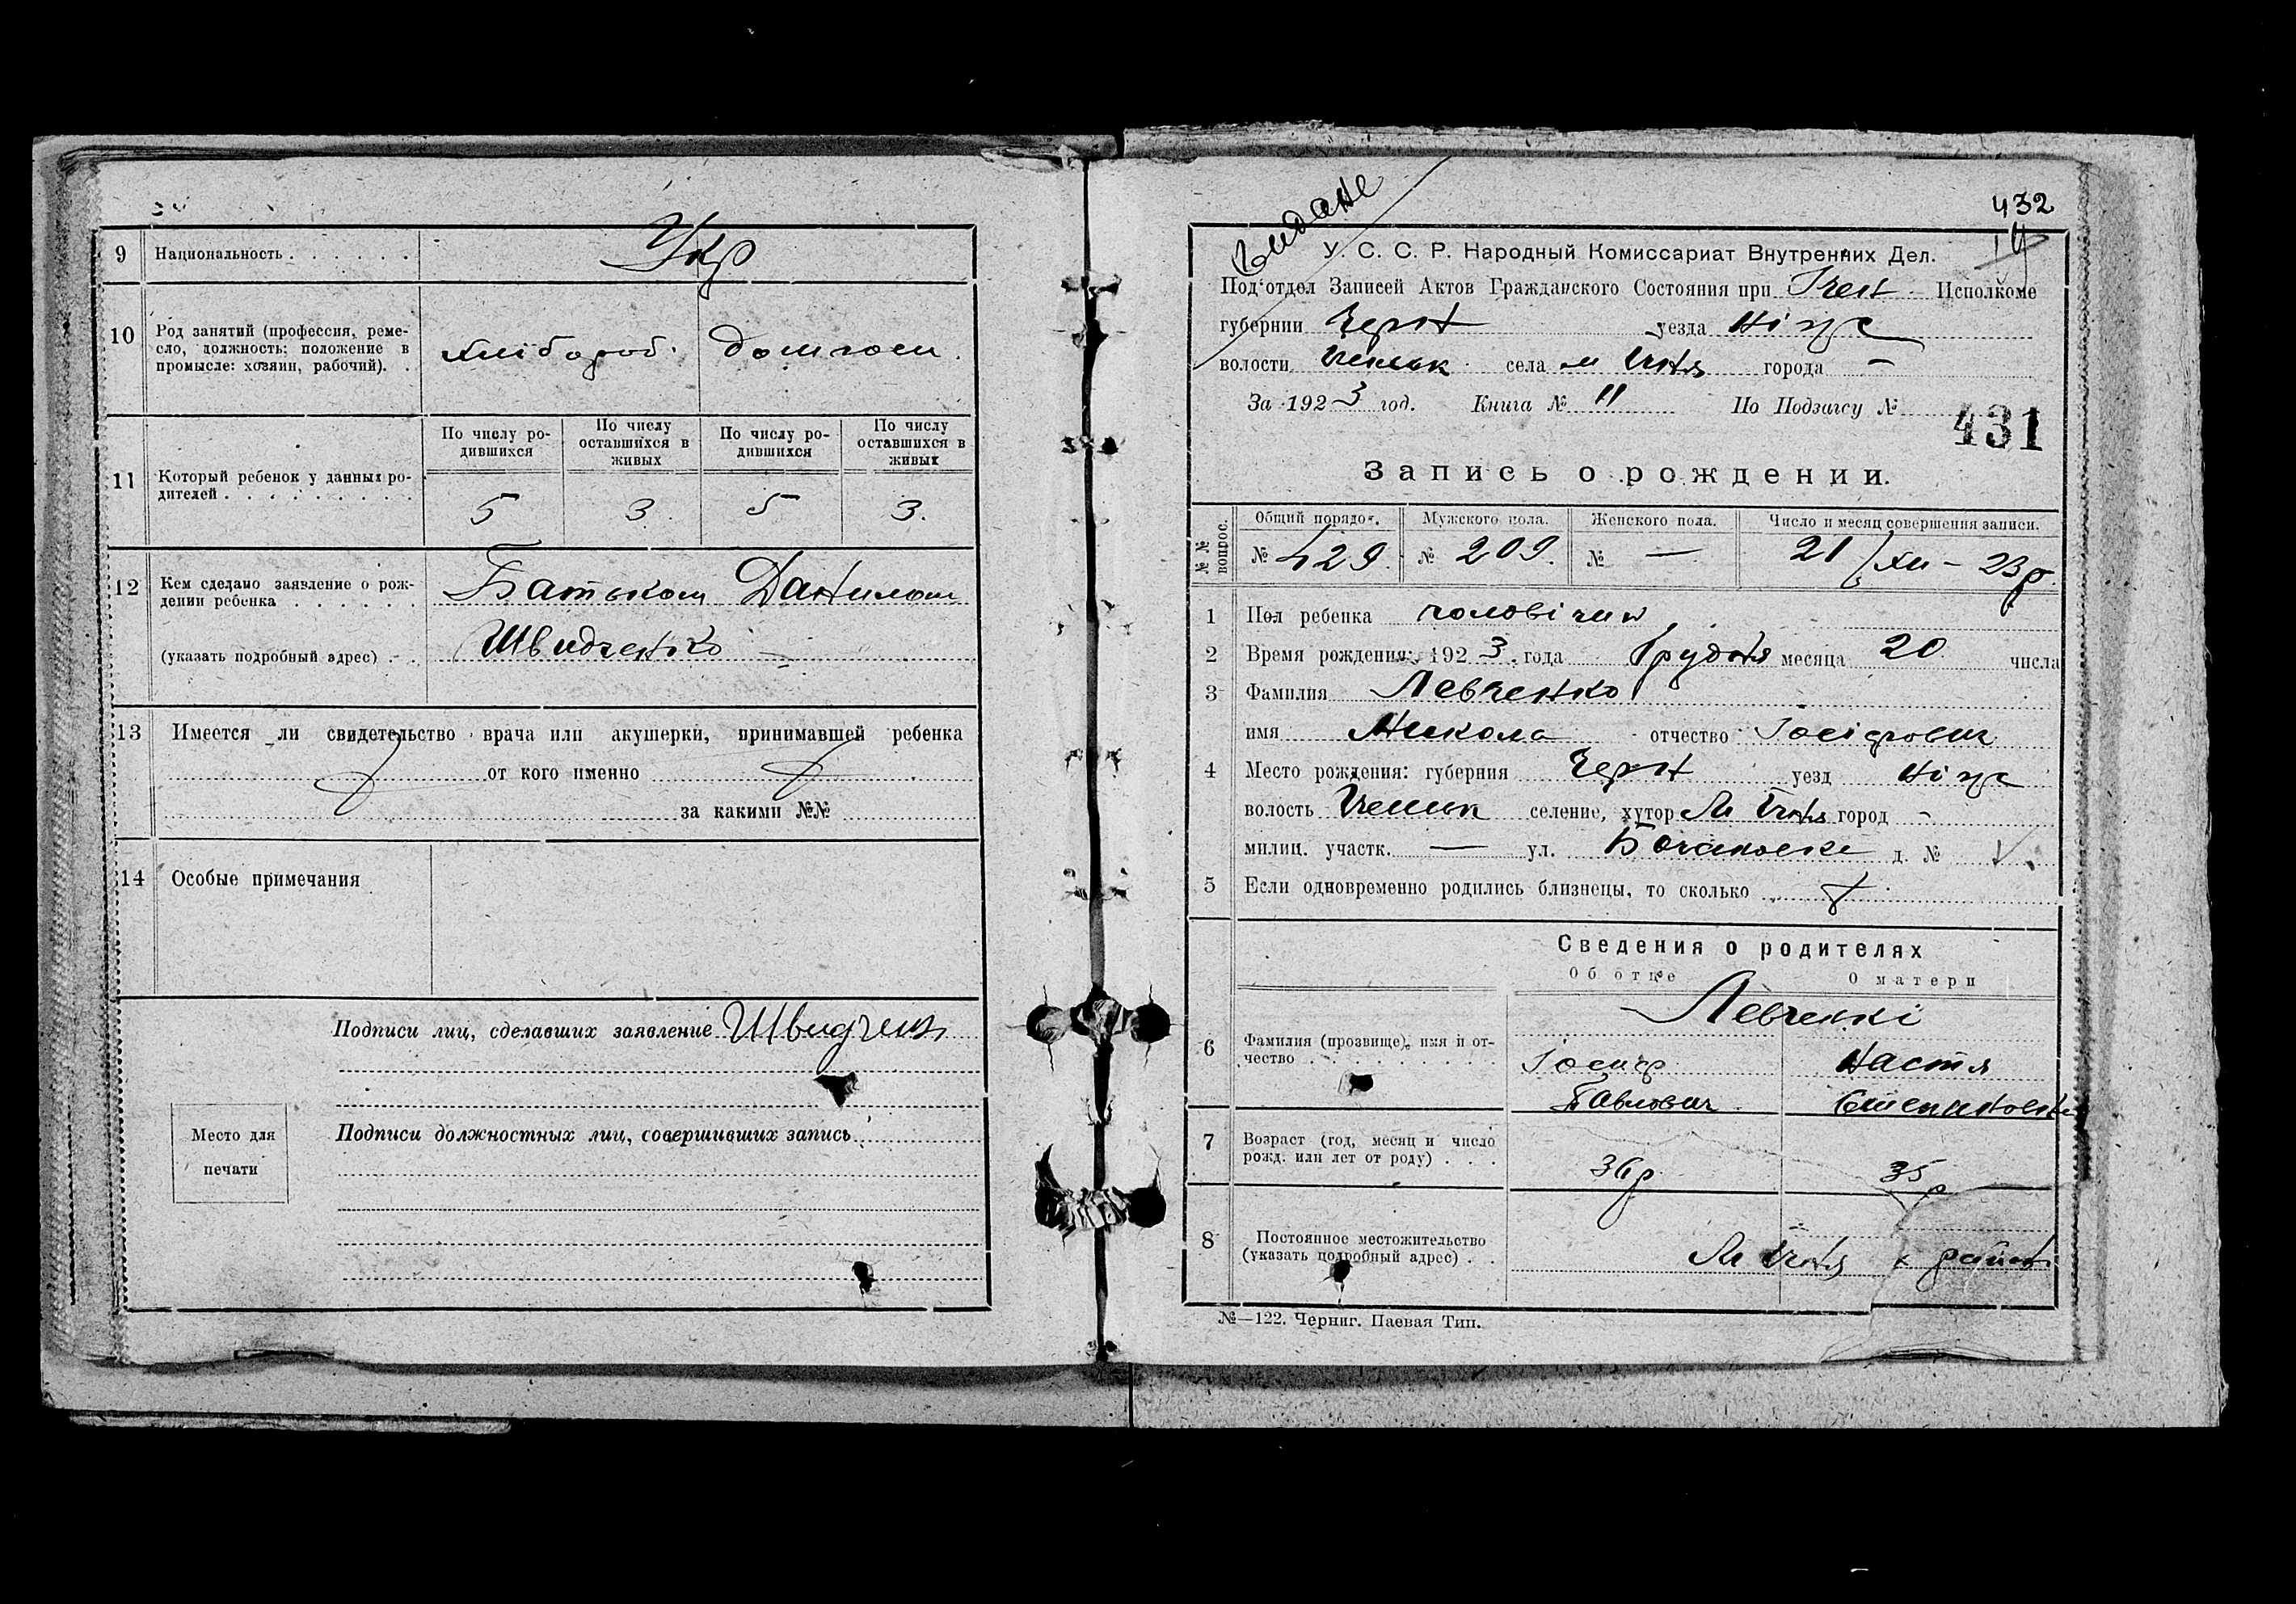 9 Национальность . . . . . . Укр
10 Род занятий (профессия, реме-
сло, должность: положение в
промысле: хозяин, рабочий). . хлібороб. домгосп.
11 Который ребенок у данных ро-
дителей . . . . . . . . .
По числу ро-
дившихся
По числу
оставшихся в
живых
По числу ро-
дившихся
По числу
оставшихся в
живых
5 3. 5 3.
12 Кем сделано заявление о рож-
дении ребенка . . . . . . Батьком Данилом
(указать подробный адрес) . . Швидченко —
13 Имеется ли свидетельство врача или акушерки, принимавшей ребенка
от кого именно
за какими №№
14 Особые примечания
Подписи лиц, сделавших заявление Швидченк
Место для
печати
Подписи должностных лиц, совершивших запись
видане
432
У. С. С. Р. Народный Комиссариат Внутренних Дел.
Под'отдел Записей Актов Гражданского Состояния при Ічен Исполкоме
губернии Черн уезда Ніж
волости Іченськ села м Ічня города —
За 1923 год. Книга № 11 По Подзагсу №
431
Запись о рождении.
№№ вопрос.
Общий порядок. Мужского пола. Женского пола. Число и месяц совершения записи.
№ 429. № 209. № — 21/XII – 23 р.
1 Пол ребенка чоловічий
2 Время рождения: 1923. года Грудня месяца 20 числа
3 Фамилия Левченко
имя Микола отчество Іосіфович
4 Место рождения: губерния Черн уезд Ніж
волость Іченськ селение, хутор М Ічня город -
милиц. участк. — ул. д. №
5 Если одновременно родились близнецы, то сколько
Сведения о родителях
Об отце О матери
Левченкі
6 Фамилия (прозвище), имя и от-
чество . . . . . . . . Іосиф Настя
Павлович Степановна
7 Возраст (год, месяц и число
рожд. или лет от роду) . . . 36 р. 35 р
8 Постоянное местожительство
(указать подробный адрес) . . М Ічня район
№—122. Черниг. Паевая Тип.